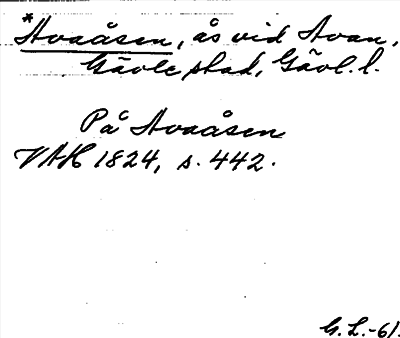 *Avaåsen, ås vid Avan,
Gävle stad, Gävl. l.
På Avaåsen
VAH 1824, s. 442.
G. L.-61.